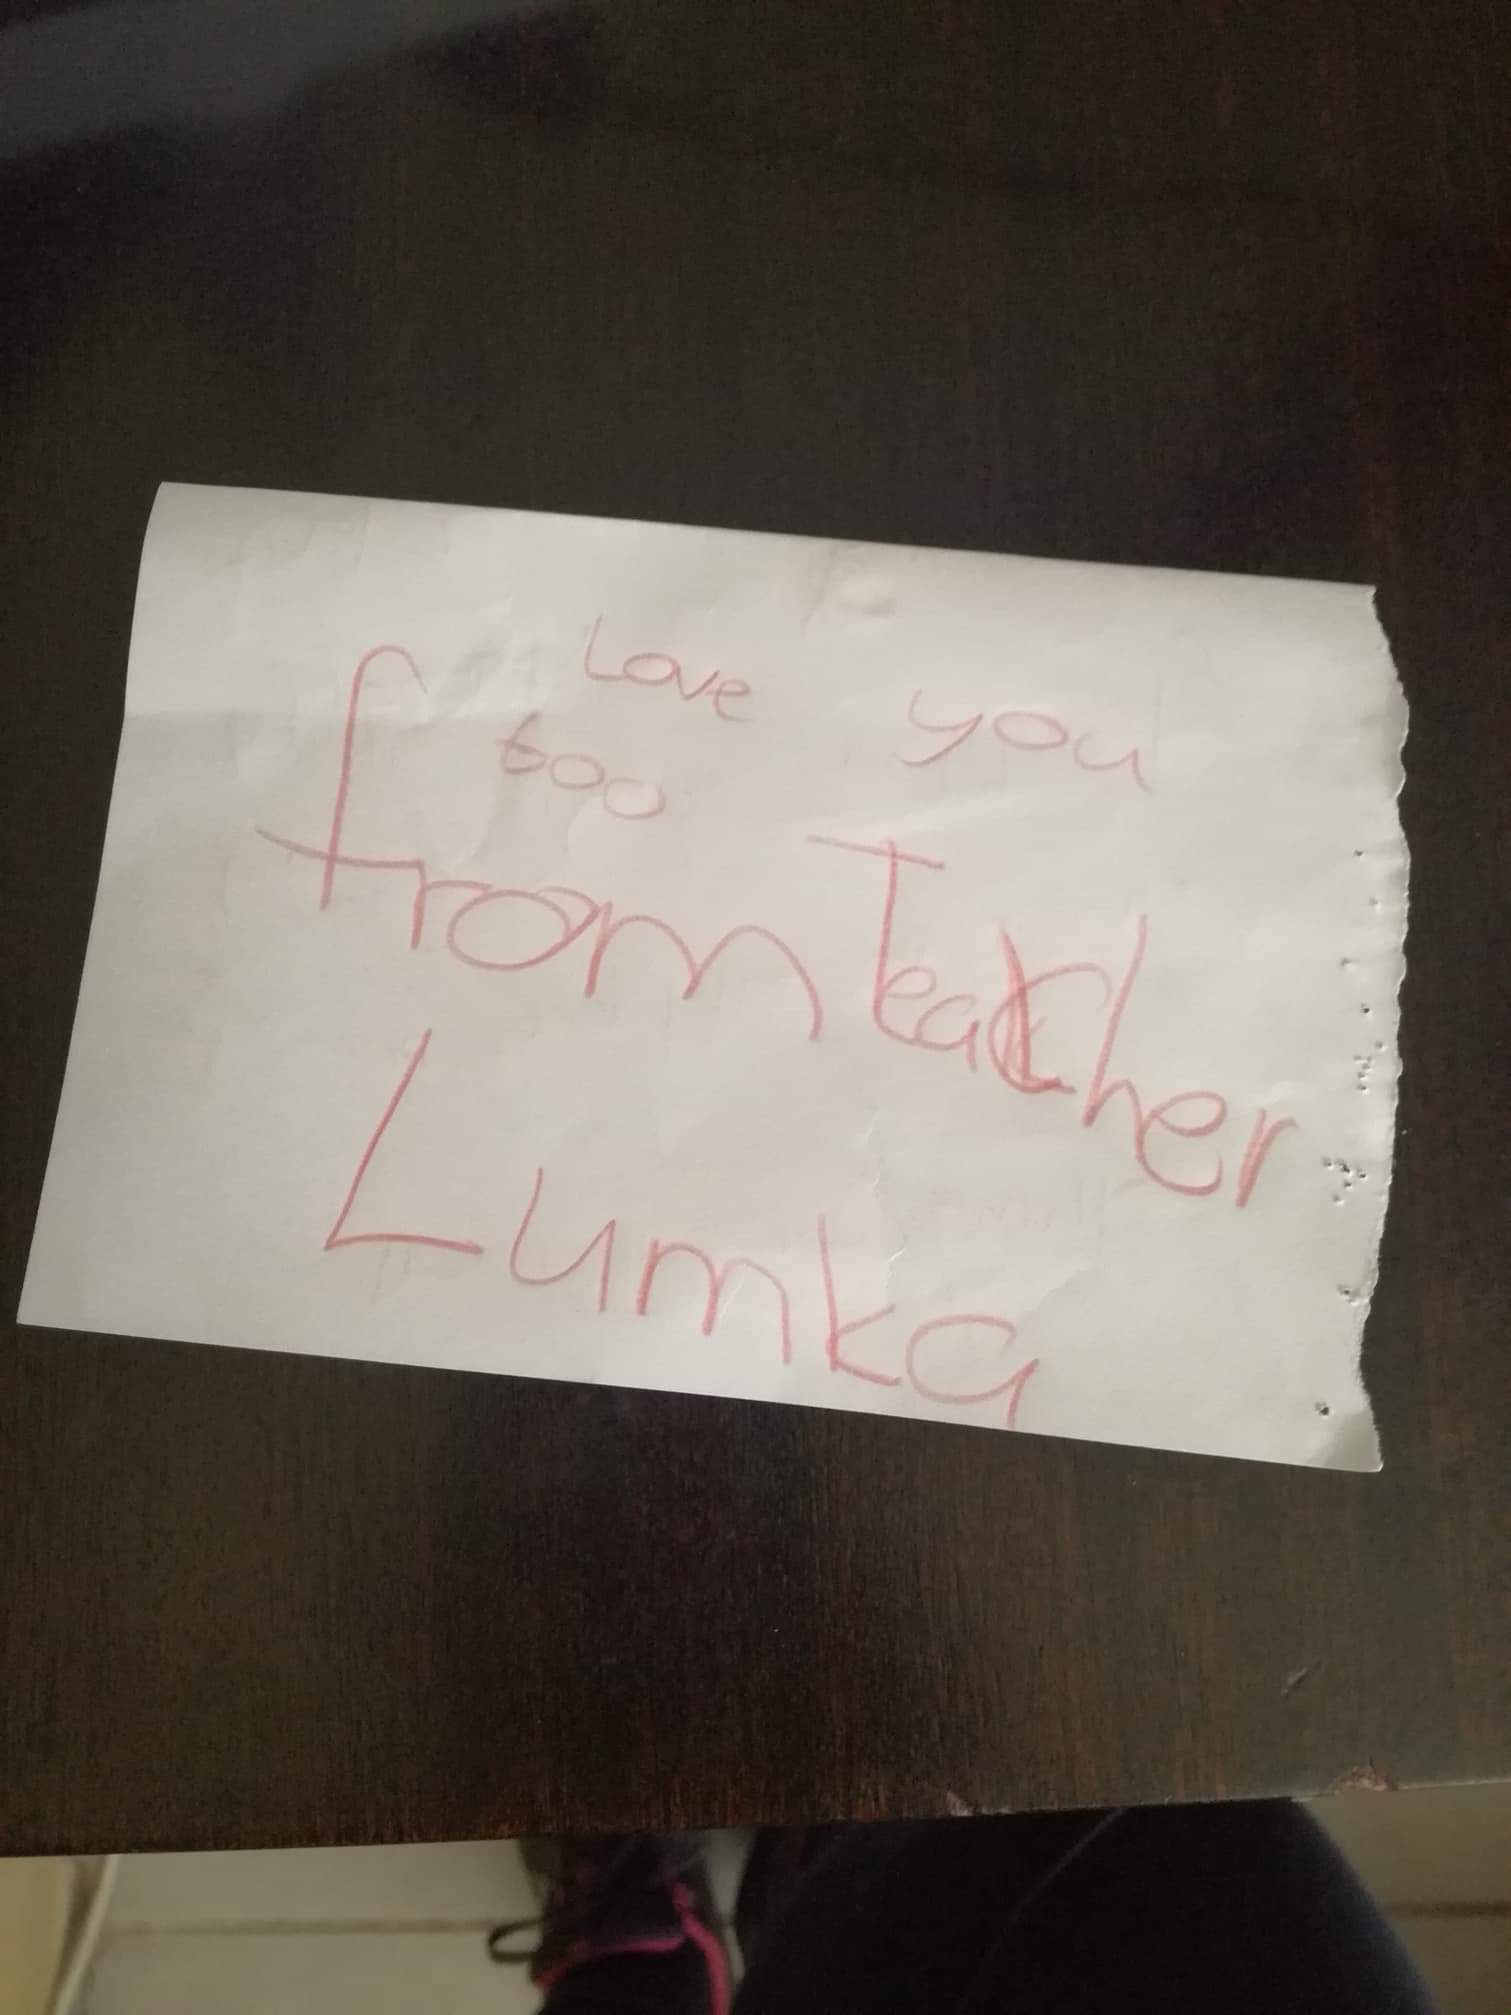 Love you
too
from Teacher
Lumka